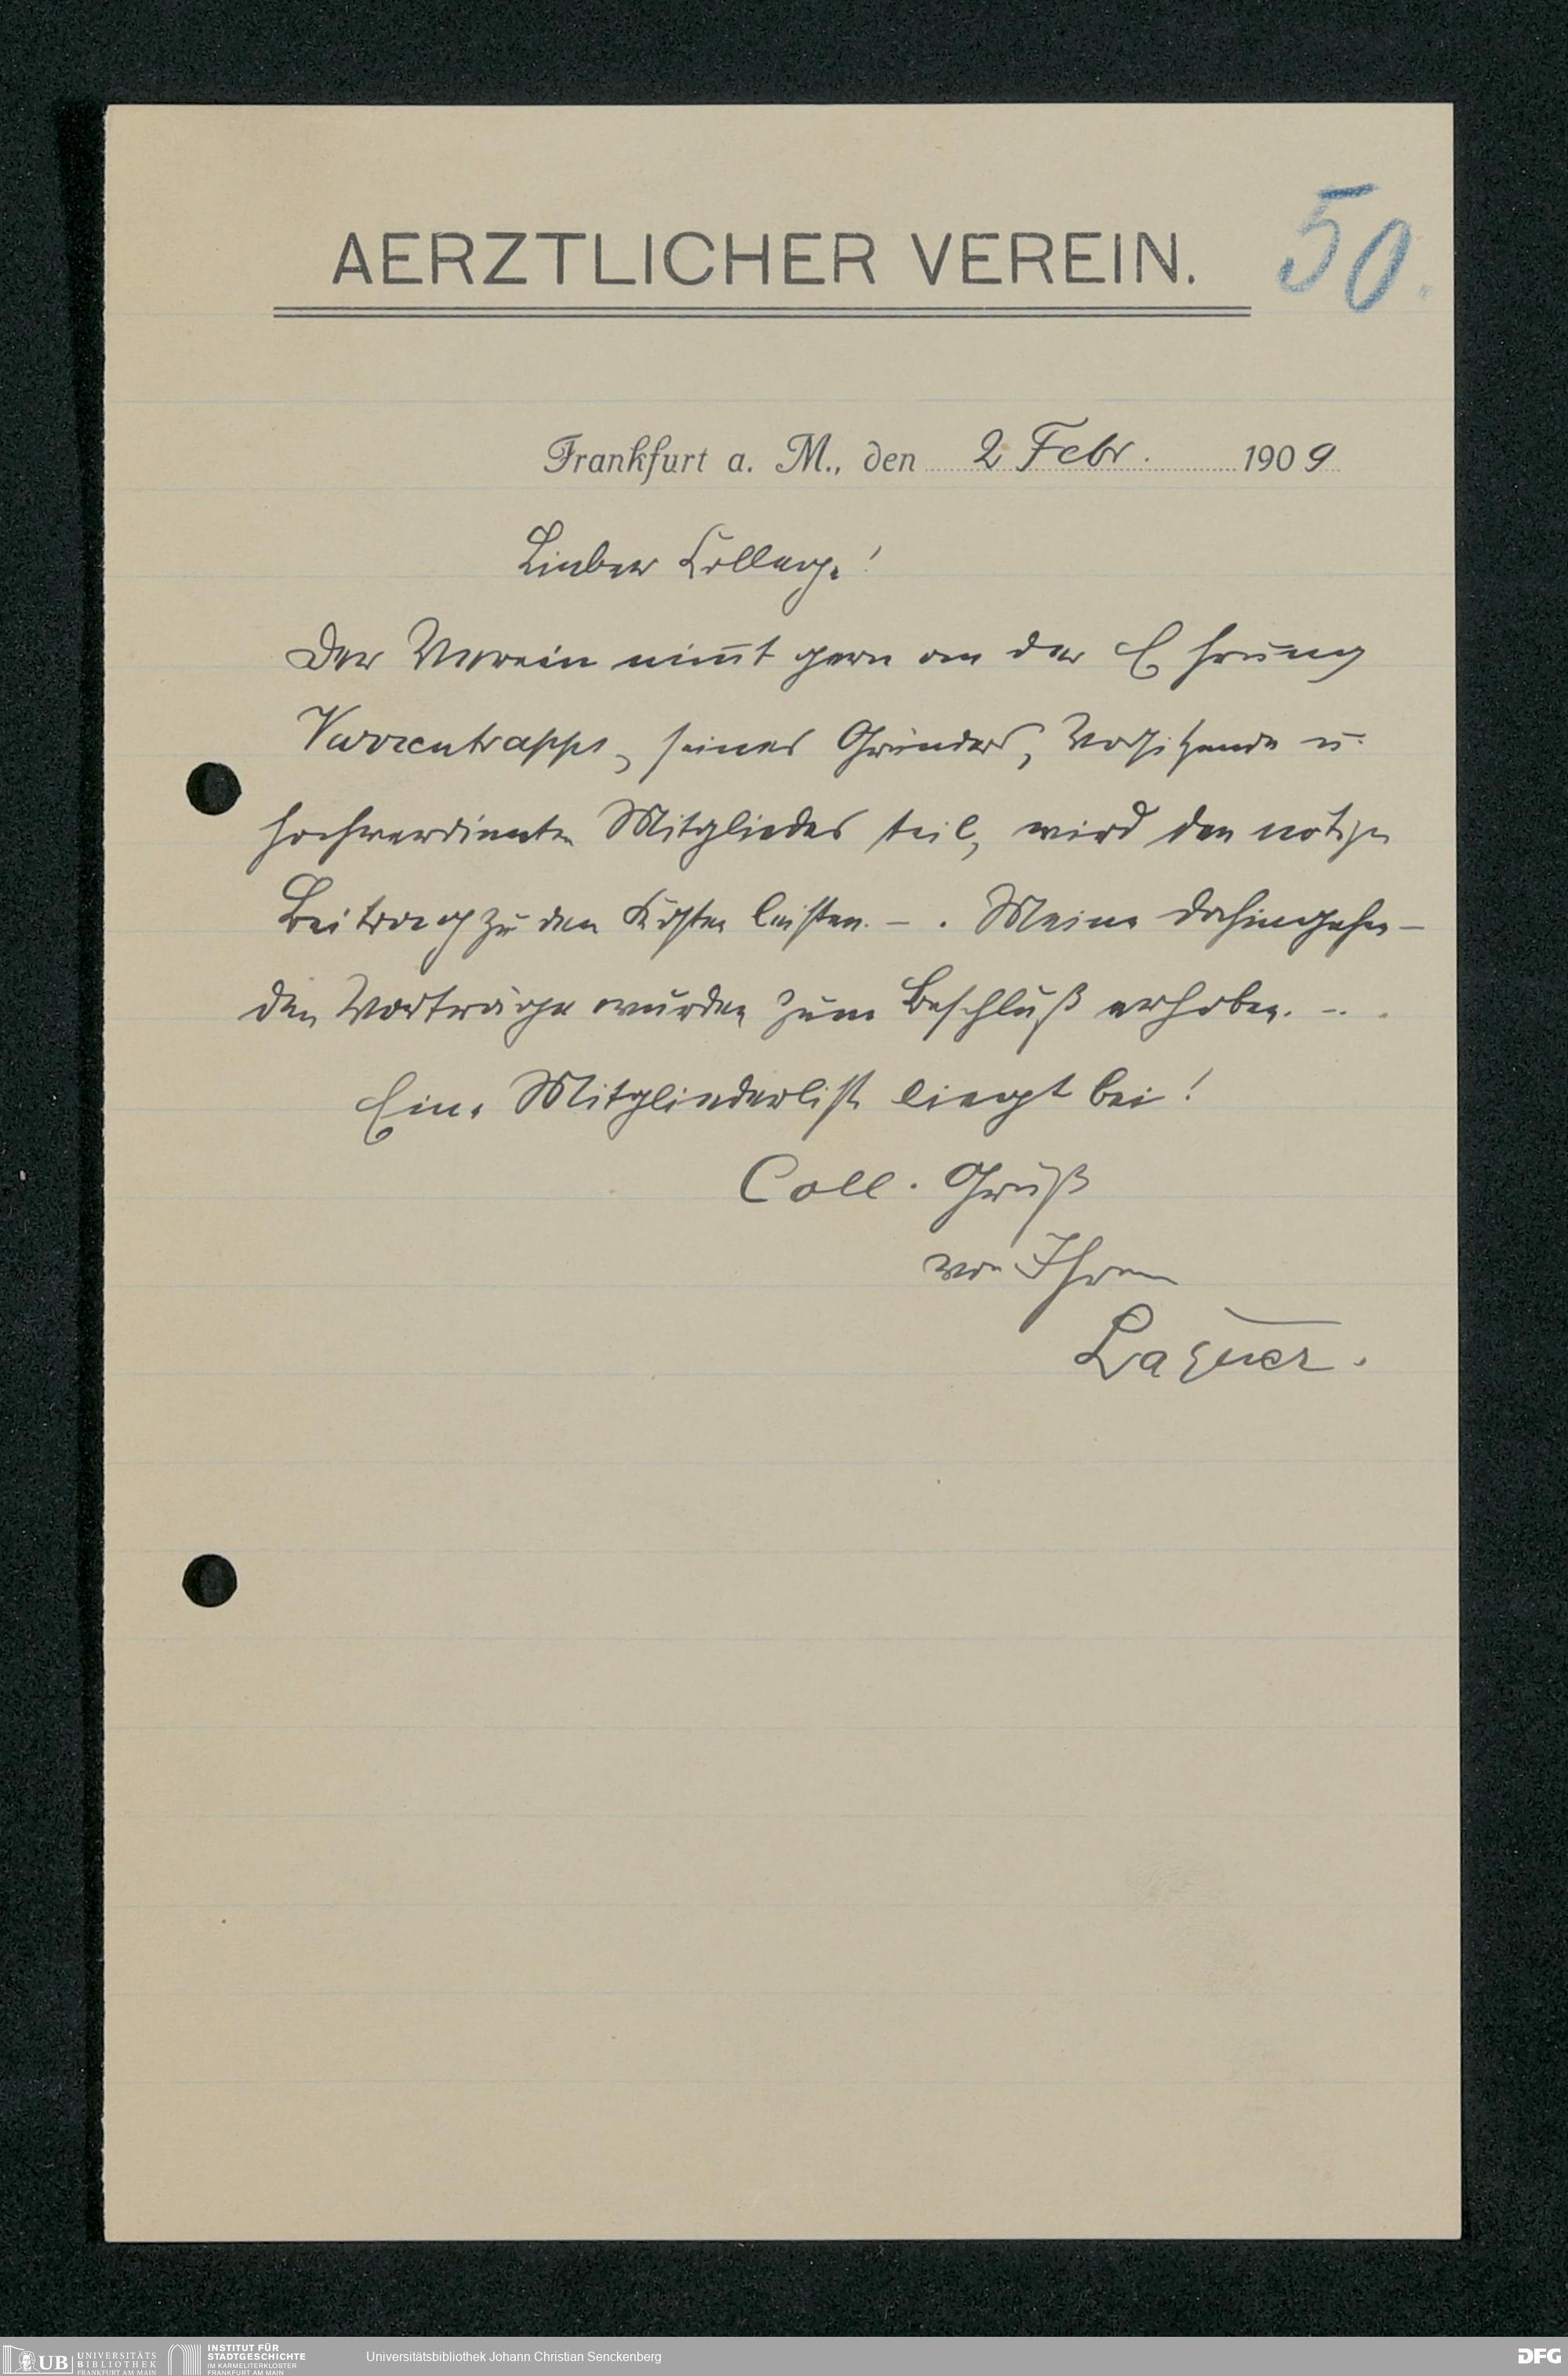 AERZTLICHER VEREIN.
50.
Frankfurt a. M., den 2 Febr. 1909
Lieber Kollege!
Der Verein nim̄t gern an der Ehrung
Varrentrapps, seines Gründers, Vorsitzende u.
hochverdienten Mitgliedes teil, wird den nötigen
Beitrag zu den Kosten leisten. – . Meine dahingehen–
den Vorträge wurden zum Beschluß erhoben. – .
Eine Mitgliederliste liegt bei!
Coll. Gruß
von Ihrem
Laquer.
UB UNIVERSITÄTS BIBLIOTHEK FRANKFURT AM MAIN
INSTITUT FÜR STADTGESCHICHTE IM KARMELITERKLOSTER FRANKFURT AM MAIN
Universitätsbibliothek Johann Christian Senckenberg
DFG